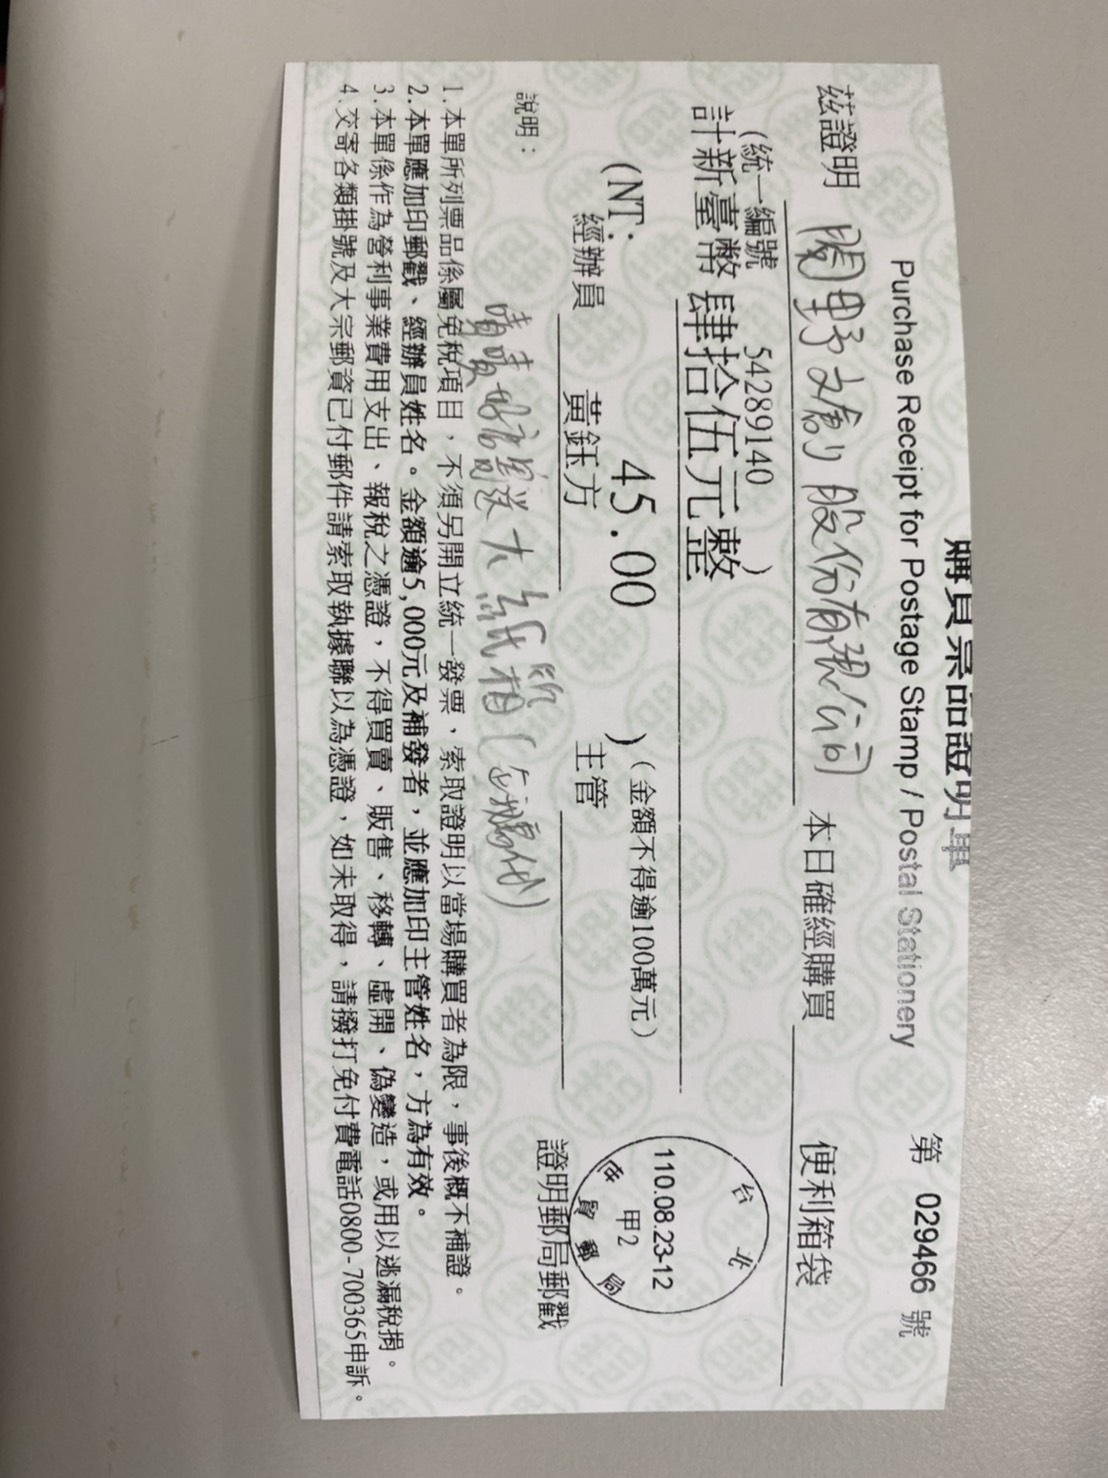 購買票品證明單
Purchase Receipt for Postage Stamp / Postal Stationery
第 029466 號
茲證明 闊野文創股份有限公司 本日確經購買 便利箱袋
(統一編號 54289140 )
計新臺幣 肆拾伍元整
(NT: 45.00 )(金額不得逾100萬元)
經辦員 黃鈺方 主管
台北
110.08.23-12
甲2
郵局
證明郵局郵戳
大紙箱(
說明:
1.本單所列票品係屬免稅項目,不須另開立統一發票,索取證明以當場購買者為限,事後概不補證。
2.本單應加印郵戳、經辦員姓名。金額逾5,000元及補發者,並應加印主管姓名,方為有效。
3.本單係作為營利事業費用支出、報稅之憑證,不得買賣、販售、移轉、虛開、偽變造,或用以逃漏稅捐。
4.交寄各類掛號及大宗郵資已付郵件請索取執據聯以為憑證,如未取得,請撥打免付費電話0800-700365申訴。